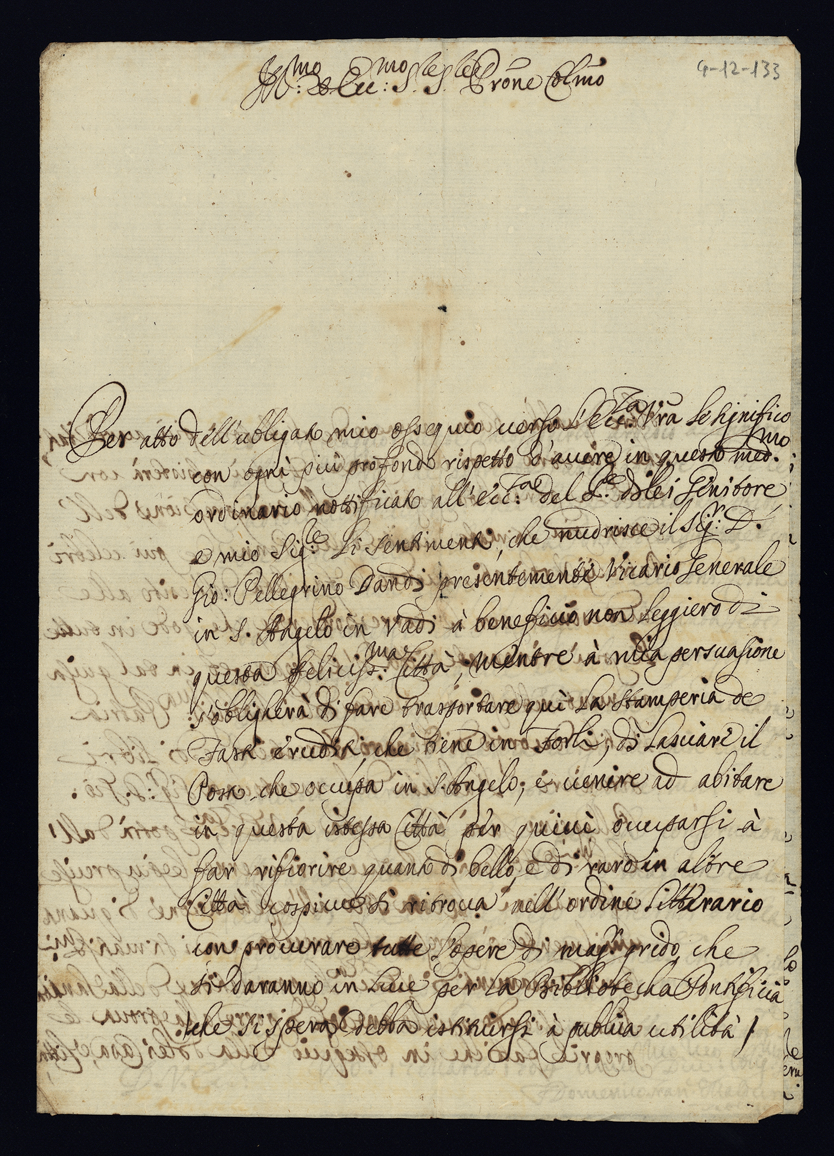 Ill:mo Ecc:mo Sig.le Sig.le Prone Colmo
4-12-133
Per atto dell'obligato mio ossequio verso l'Ecc:za Vra le significo
con ogni più profondo rispetto d'avere in questo med.mo
ordinario notificato all'Ecc:za del Sig.re di lei Genitore
e mio Sig:re li sentimenti, che nudrisce il Sig:r D.
Gio: Pellegrino Dandi presentemente Vicario Generale
in S. Angelo in Vado à beneficio non leggiero di
questa felicis.ma Città, mentre à mia persuasione
s'obligherà di fare trasportare quì la Stamperia de
Fasti eruditi che tiene in Forlì, di lasciare il
Posto che occupa in S. Angelo, e venire ad abitare
in questa istessa Città per quivi occuparsi à
far rifiorire quanto di bello, e di raro in altre
Città cospicue si ritrova nell'ordine litterario
con procurare tutte l'opere di magr grido, che
si daranno in luce per la Biblioteca Pontificia
che si spera debba istituirsi à publica utilità /